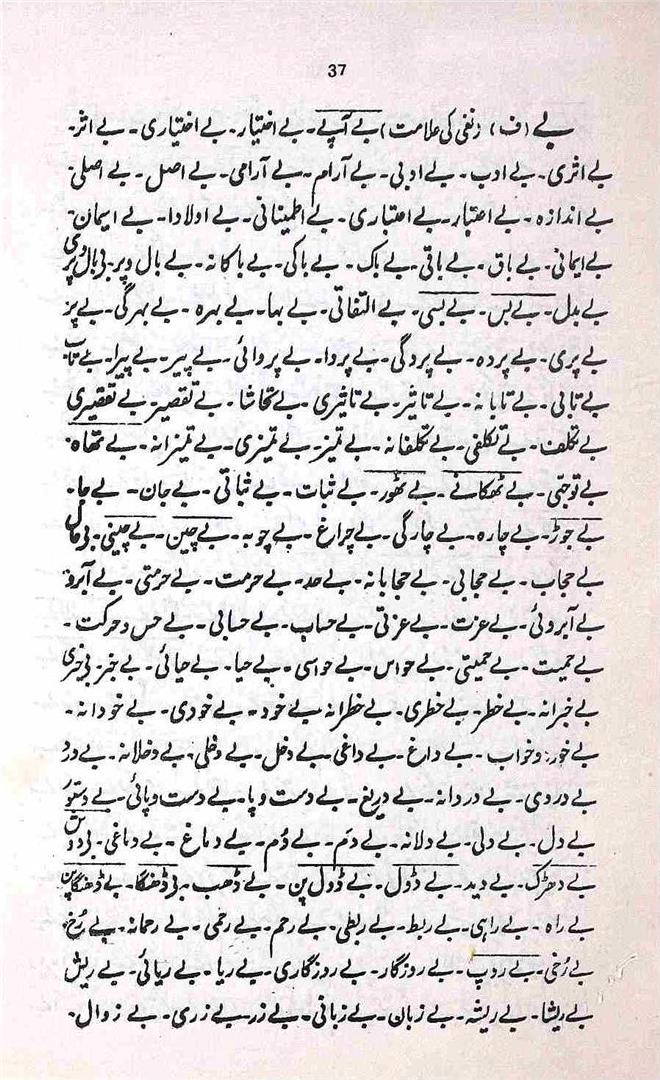 37
بے (ف) (نفی کی علامت) بے آپے۔ بے اختیار۔ بے اختیاری۔ بے اثر۔
بے اثری۔ بے ادب۔ بے ادبی۔ بے آرام۔ بے آرامی۔ بے اصل۔ بے اصلی۔
بے اندازہ۔ بے اعتبار۔ بے اعتباری۔ بے اطمینانی۔ بے اولادا۔ بے ایمان۔
بے ایمانی۔ بے باق۔ بے باقی۔ بے باک۔ بے باکی۔ بے باکانہ۔ بے بال و پر۔ بے بال و پری
بے بدل۔ بے بس۔ بے بسی۔ بے التفاتی۔ بے بہا۔ بے بہرہ۔ بے بہرگی۔ بے پر
بے پری۔ بے پردہ۔ بے پردگی۔ بے پروا۔ بے پروائی۔ بے پیر۔ بے پیرا۔ بے تاب
بے تابی۔ بے تابانہ۔ بے تاثیر۔ بے تاثیری۔ بے تحاشا۔ بے تقصیر۔ بے تقصیری
بے تکلف۔ بے تکلفی۔ بے تکلفانہ۔ بے تمیز۔ بے تمیزی۔ بے تمیزانہ۔ بے تھاہ۔
بے توجہی۔ بے ٹھکانے۔ بے ٹھور۔ بے ثبات۔ بے ثباتی۔ بے جان۔ بے جا۔
بے جوڑ۔ بے چارہ۔ بے چارگی۔ بے چراغ۔ بے چوبہ۔ بے چین۔ بے چینی۔ بے حال
بے حجاب۔ بے حجابی۔ بے حجابانہ۔ بے حد۔ بے حرمت۔ بے حرمتی۔ بے آبرو
بے آبروئی۔ بے عزت۔ بے عزتی۔ بے حساب۔ بے حسابی۔ بے حس و حرکت۔
بے حمیت۔ بے حمیتی۔ بے حواس۔ بے حواسی۔ بے حیا۔ بے حیائی۔ بے خبر۔ بے خبری
بے خبرانہ۔ بے خطر۔ بے خطری۔ بے خطرانہ۔ بے خود۔ بے خودی۔ بے خودانہ۔
بے خور و خواب۔ بے داغ۔ بے داغی۔ بے دخل۔ بے دخلی۔ بے دخلانہ۔ بے درد
بے دردی۔ بے دردانہ۔ بے دریغ۔ بے دست و پا۔ بے دست و پائی۔ بے دستور
بے دل۔ بے دلی۔ بے دلانہ۔ بے دَم۔ بے دُم۔ بے دماغ۔ بے دماغی۔ بے دوش
بے دھڑک۔ بے دید۔ بے ڈول۔ بے ڈول پن۔ بے ڈھب۔ بے ڈھنگا۔ بے ڈھنگا پن
بے راہ۔ بے راہی۔ بے ربط۔ بے ربطی۔ بے رحم۔ بے رحمی۔ بے رحمانہ۔ بے رُخ۔
بے رُخی۔ بے روپ۔ بے روزگار۔ بے روزگاری۔ بے ریا۔ بے ریائی۔ بے ریش
بے ریشا۔ بے ریشہ۔ بے زبان۔ بے زبانی۔ بے زر۔ بے زری۔ بے زوال۔